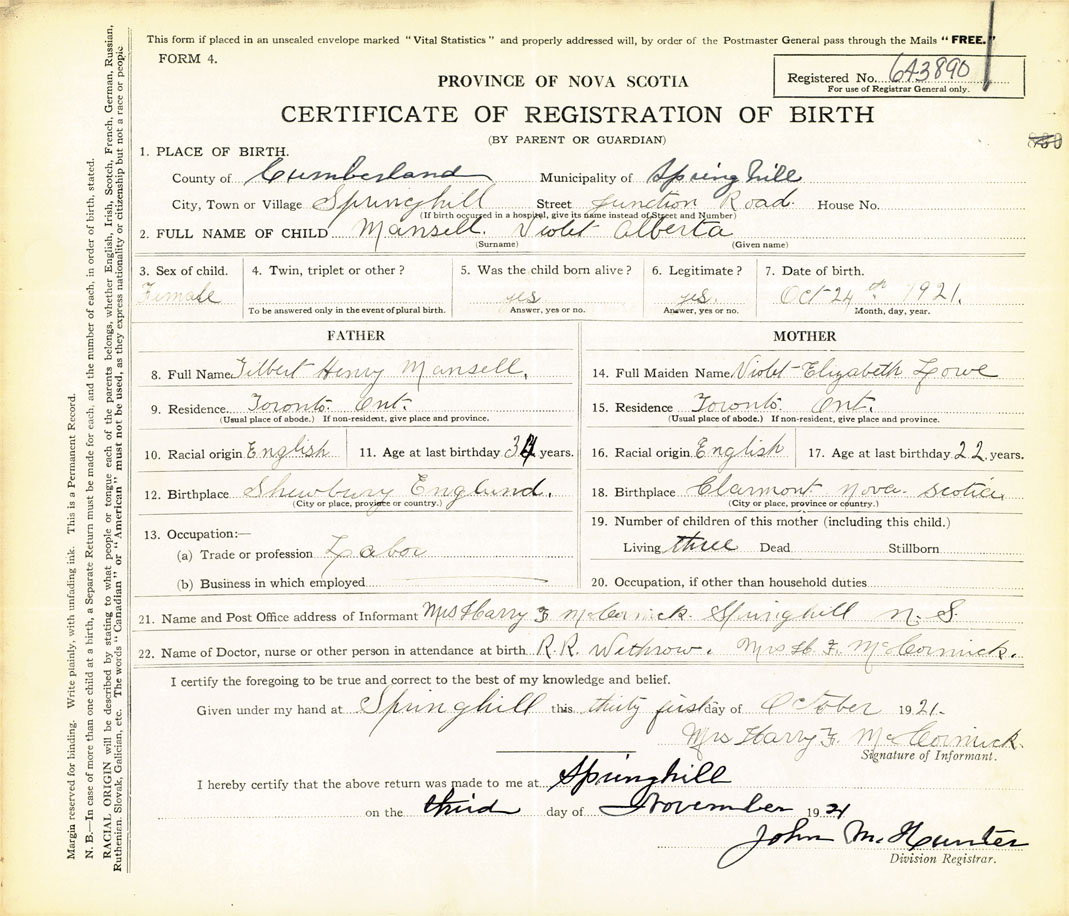 This form if placed in an unsealed envelope marked "Vital Statistics" and properly addressed will, by order of the Postmaster General pass through the Mails "FREE."
FORM 4.
Registered No. 643890
For use of Registrar General only.
PROVINCE OF NOVA SCOTIA
CERTIFICATE OF REGISTRATION OF BIRTH
(BY PARENT OR GUARDIAN)
1. PLACE OF BIRTH.
County of Cumberland Municipality of Spring hill
City, Town or Village Springhill Street Junction Road. House No.
(If birth occurred in a hospital, give its name instead of Street and Number)
2. FULL NAME OF CHILD Mansell. Violet Alberta
(Surname) (Given name)
3. Sex of child. 4. Twin, triplet or other? 5. Was the child born alive? 6. Legitimate? 7. Date of birth.
Female yes yes. Oct 24th 1921.
To be answered only in the event of plural birth. Answer, yes or no. Answer, yes or no. Month, day, year.
FATHER MOTHER
8. Full Name Filbert Henry Mansell. 14. Full Maiden Name Violet Elizabeth Lowe
9. Residence Toronto. Ont. 15. Residence Toronto. Ont.
(Usual place of abode.) If non-resident, give place and province. (Usual place of abode.) If non-resident, give place and province.
10. Racial origin English 11. Age at last birthday 34 years. 16. Racial origin English 17. Age at last birthday 22 years.
12. Birthplace Shewbury England. 18. Birthplace Clarmont nova. scotia.
(City or place, province or country.) (City or place, province or country.)
13. Occupation:— 19. Number of children of this mother (including this child.)
(a) Trade or profession Labor Living three Dead Stillborn
(b) Business in which employed 20. Occupation, if other than household duties
21. Name and Post Office address of Informant Mrs Harry F McCormick. Springhill N. S.
22. Name of Doctor, nurse or other person in attendance at birth R. R. Withrow. Mrs H. F. McCormick.
I certify the foregoing to be true and correct to the best of my knowledge and belief.
Given under my hand at Springhill this thirty first day of October 1921.
Mrs Harry F. McCormick.
Signature of Informant.
I hereby certify that the above return was made to me at Springhill
on the third day of November 1921
John McHunter
Division Registrar.
Margin reserved for binding. Write plainly, with unfading ink. This is a Permanent Record.
N. B.—In case of more than one child at a birth, a Separate Return must be made for each, and the number of each, in order of birth, stated.
RACIAL ORIGIN will be described by stating to what people or tongue each of the parents belongs, whether English, Irish, Scotch, French, German, Russian,
Ruthenian, Slovak, Galician, etc. The words "Canadian" or "American" must not be used, as they express nationality or citizenship but not a race or people